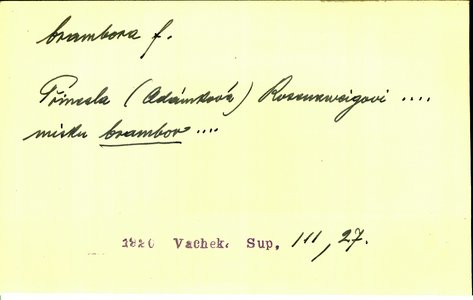 brambora f.
Přinesla (Adámková) Rosenzweigovi ....
misku brambor ....
1920 Vachek. Sup, III, 27.